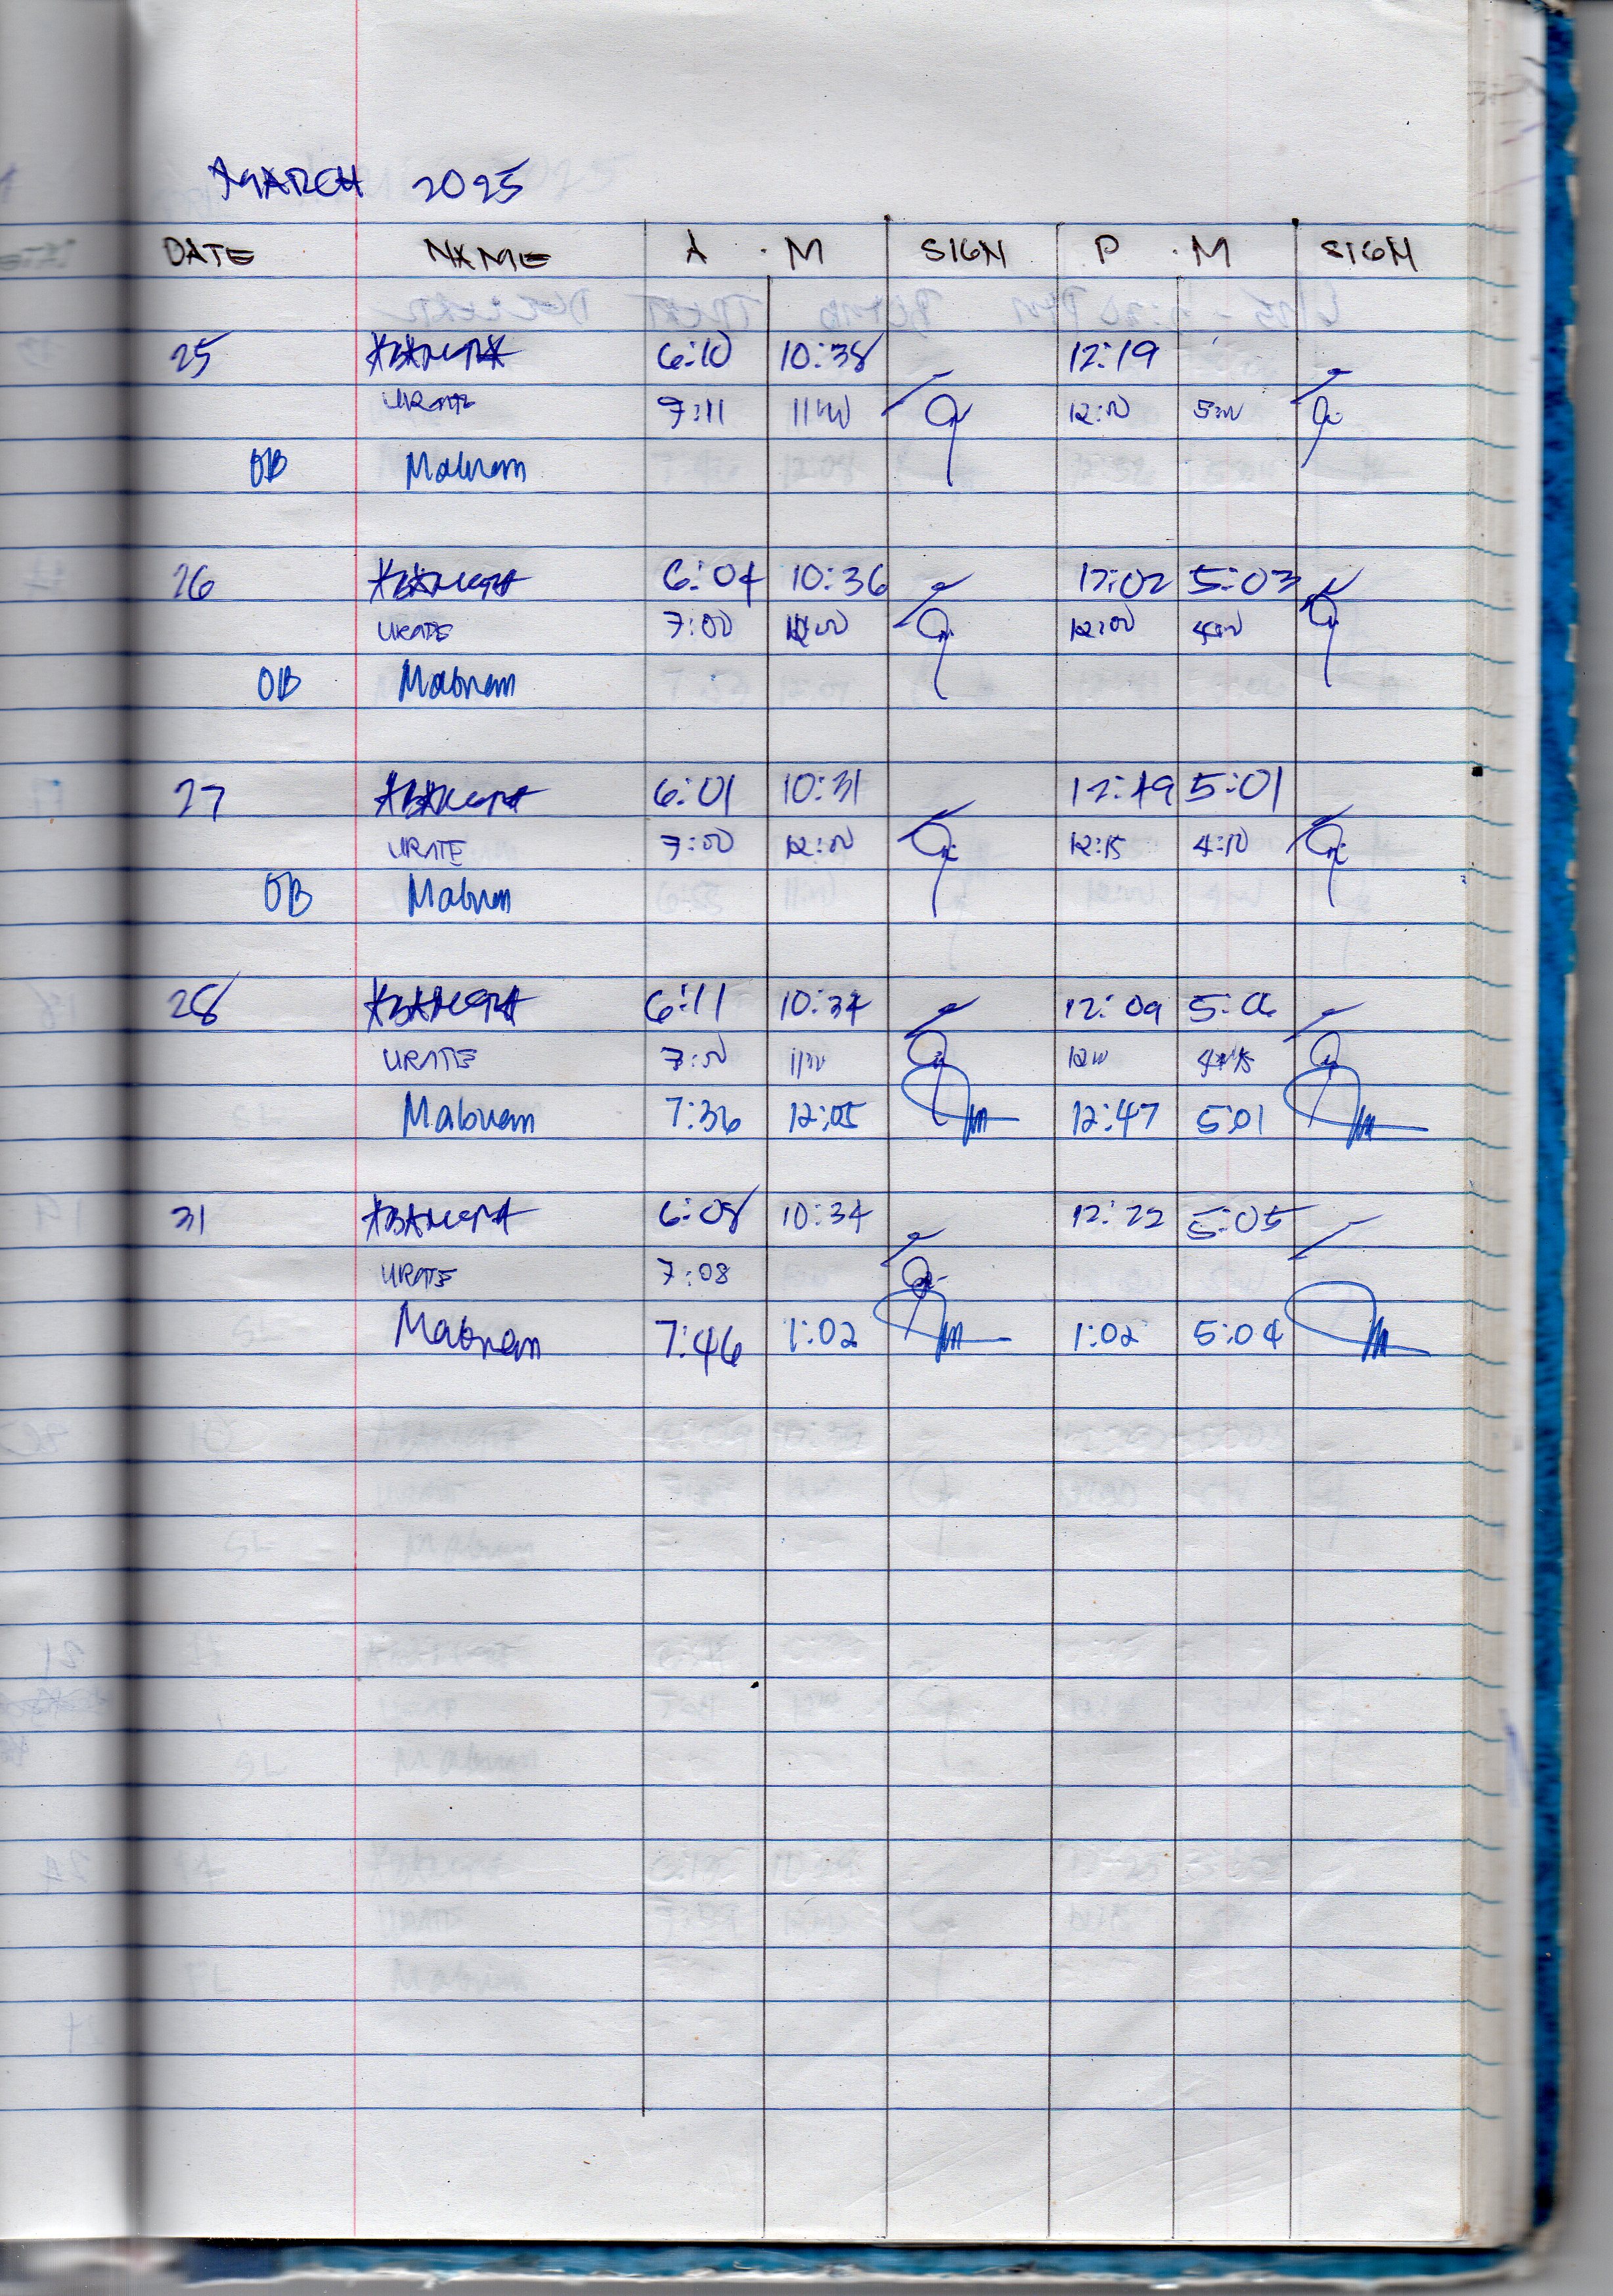 MARCH 2025
DATE NAME A . M SIGN P . M SIGN
25 6:10 10:38 12:19
URATE 7:11 11:00 12:00 5:00
OB Mabnem
26 6:04 10:36 12:02 5:03
URATE 7:00 12:00
OB Mabnem
27 6:01 10:31 12:49 5:01
URATE 7:00 12:00 12:15 4:10
OB Mabnem
28 6:11 10:34 12:09
URATE 7:00
Mabnem 7:36 12:05 12:47 5:01
31 6:08 10:34 12:22 5:05
URATE 7:08
Mabnem 7:46 1:02 1:02 5:04